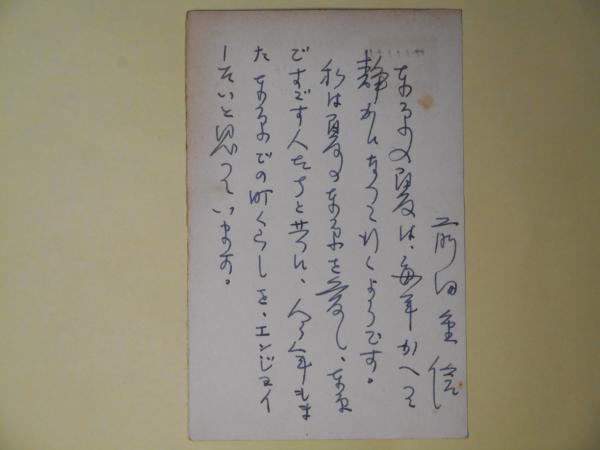 前田重信
東京の夏は、毎年かへって
静かになって行くようです。
私は夏の東京を愛し、東京
ですごす人たちと共に、今年もま
た東京での町ぐらしを、エンジョイ
したいと思っています。